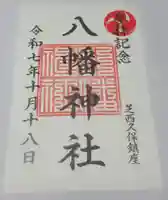 記念
芝西久保鎮座
八幡神社
令和七年十月十八日